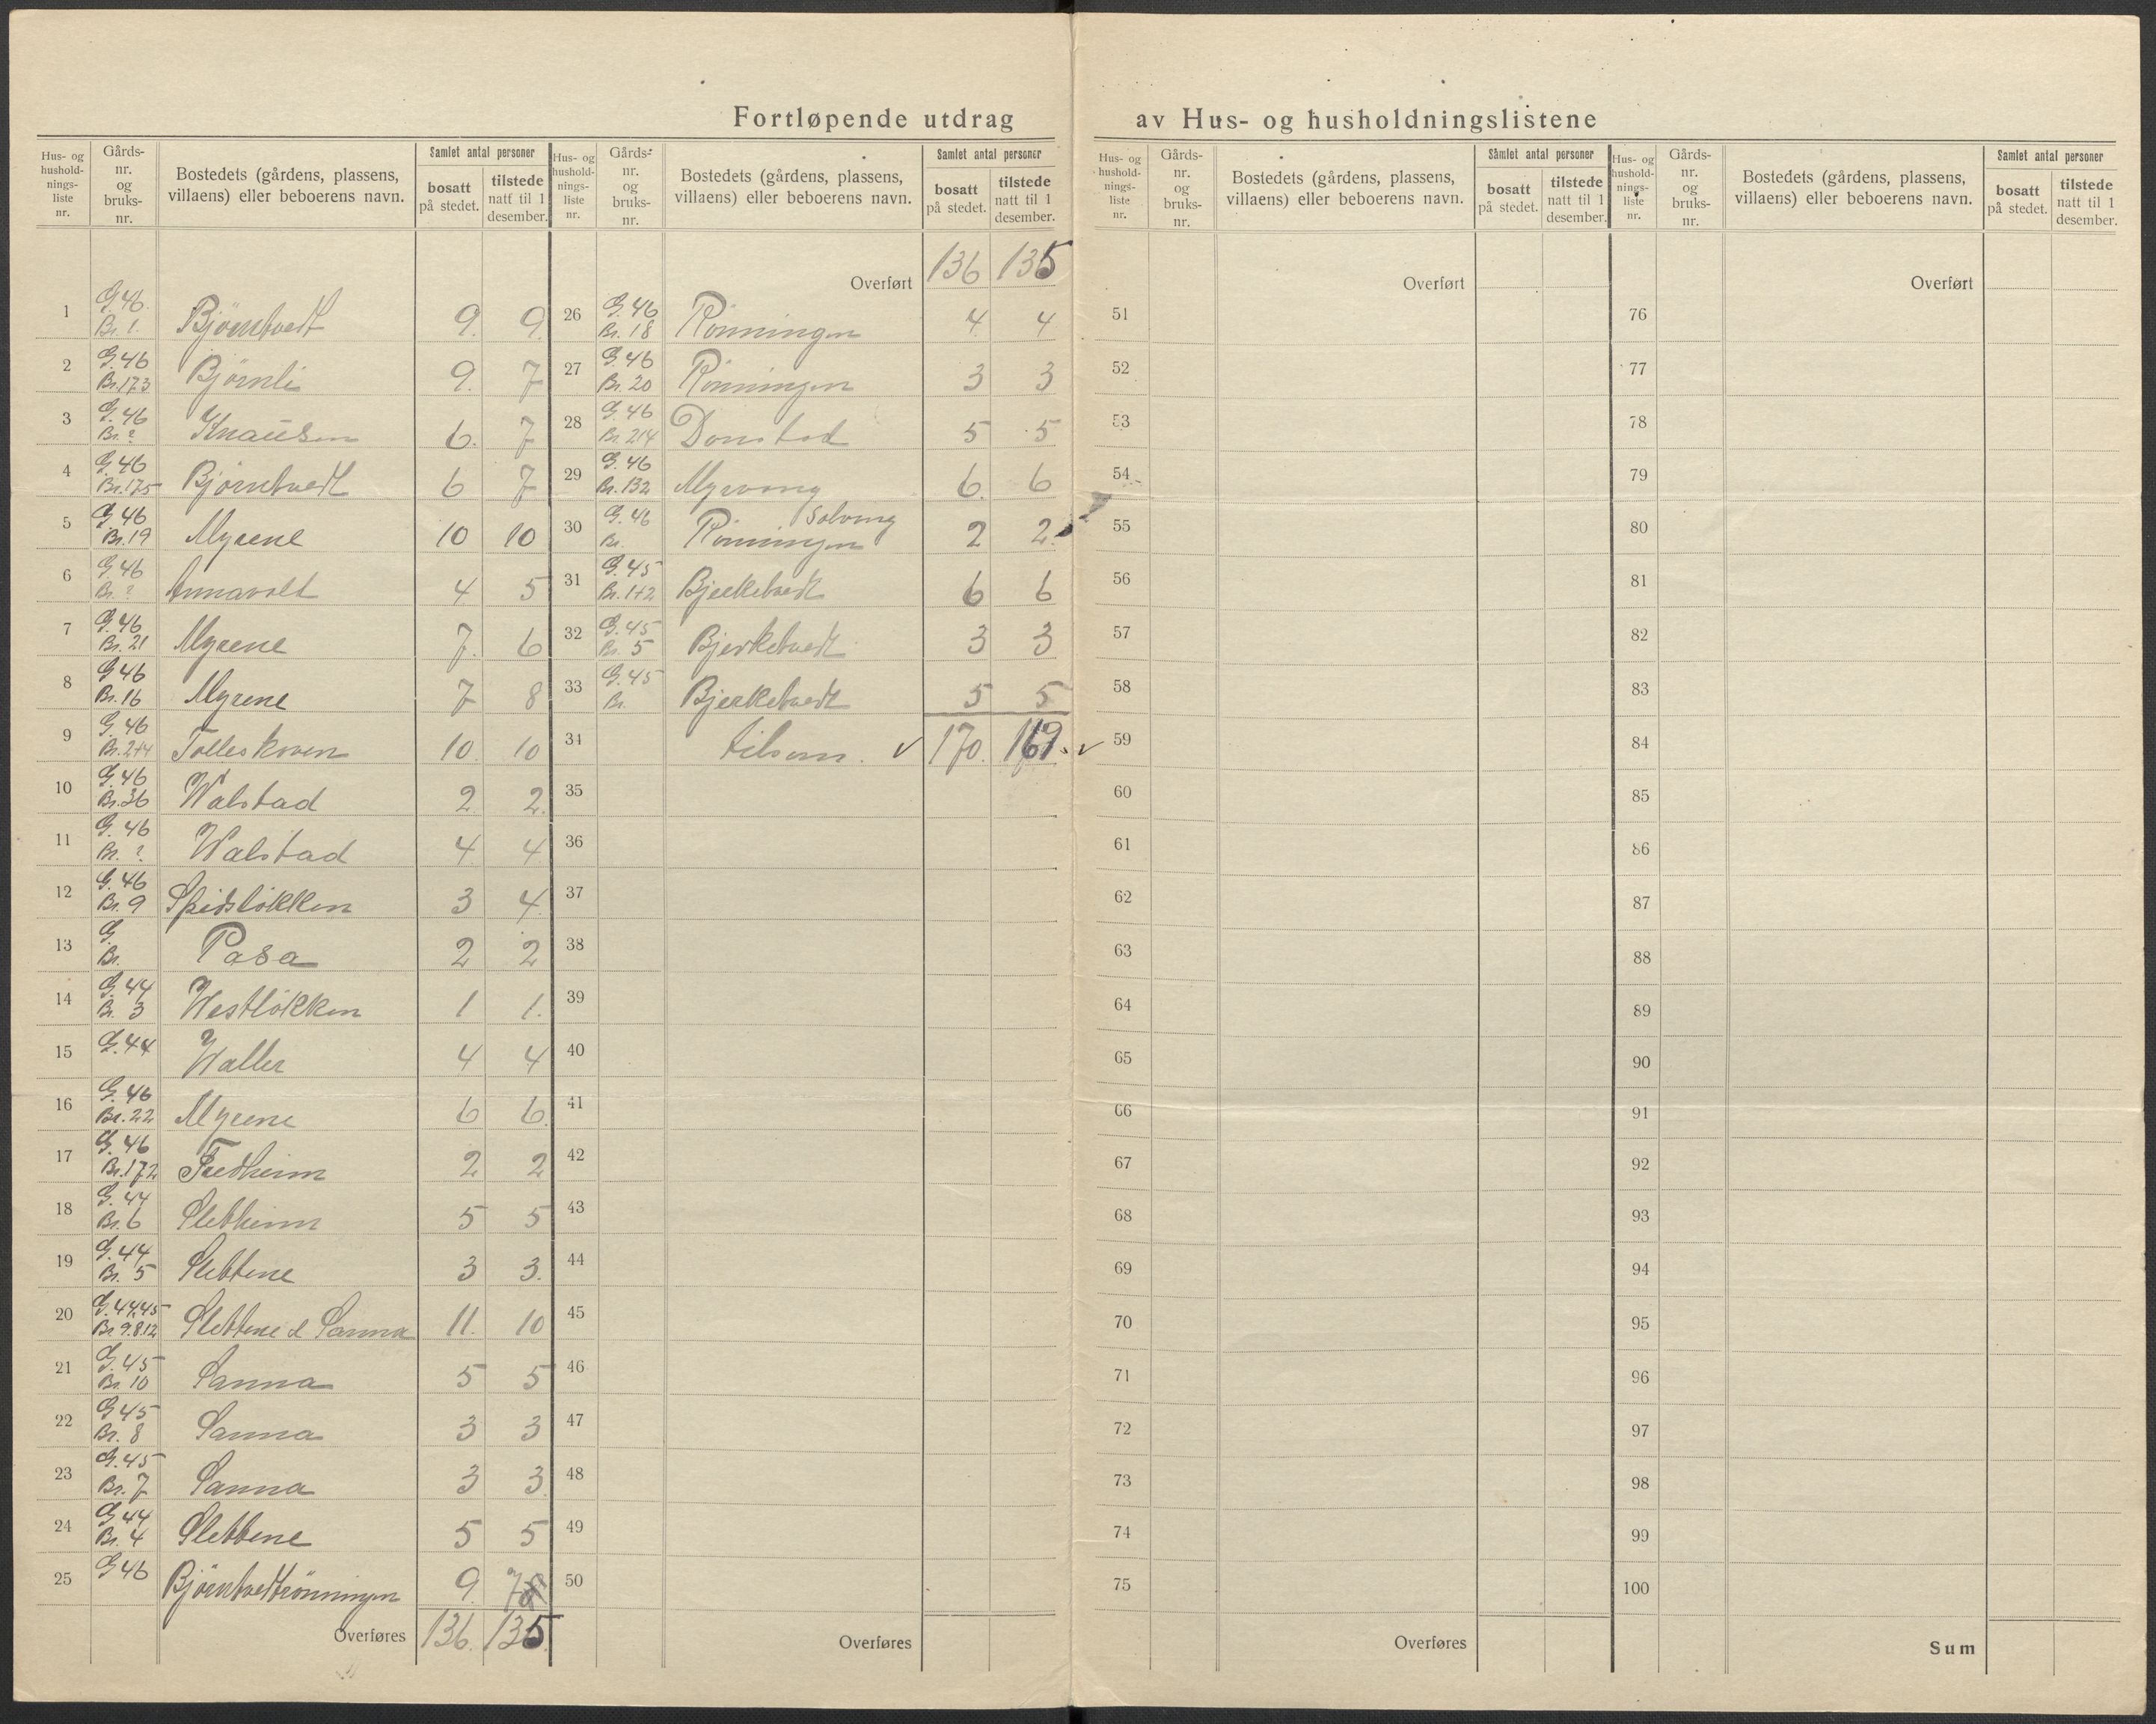 Fortløpende utdrag av Hus- og husholdningslistene
Hus- og hushold-nings-liste nr. | Gårds-nr. og bruks-nr. | Bostedets (gårdens, plassens, villaens) eller beboerens navn. | Samlet antal personer bosatt på stedet. | tilstede natt til 1 desember.
1 G. 46 Br. 1. Bjørntvedt 9. 9.
2 G. 46 Br. 173 Bjørnli 9. 7
3 G. 46 Br. ? Knausen 6. 7
4 G. 46 Br. 175 Bjørntvedt 6 7
5 G. 46 Br. 19 Myrene 10 10
6 G. 46 Br. ? Annavold 4 5
7 G. 46 Br. 21 Myrene 7. 6
8 G. 46 Br. 16 Myrene 7 8
9 G. 46 Br. 2+4 Tolleskoven 10. 10
10 G. 46 Br. 36 Walstad 2 2
11 G. 46 Br. ? Walstad 4 4
12 G. 46 Br. 9 Spidsløkken 3 4
13 G. Br. Pasa 2 2
14 G. 44 Br. 3 Westløkken 1 1.
15 G. 44 Waller 4 4
16 G. 46 Br. 22 Myrene 6 6
17 G. 46 Br. 172 Fredheim 2 2
18 G. 44 Br. 6 Sletheim 5 5
19 G. 44 Br. 5 Slettene 3 3.
20 G. 44,45 Br. 9.8.12 Slettene & Sanna 11. 10
21 G. 45 Br. 10 Sanna 5 5
22 G. 45 Br. 8 Sanna 3 3
23 G. 45 Br. 7 Sanna 3 3
24 G. 44 Br. 4 Slettene 5 5
25 G. 46 Bjørntvedtrønningen 9. 7
Overføres 136. 135.
Hus- og hushold-nings-liste nr. | Gårds-nr. og bruks-nr. | Bostedets (gårdens, plassens, villaens) eller beboerens navn. | Samlet antal personer bosatt på stedet. | tilstede natt til 1 desember.
Overført 136 135
26 G. 46 Br. 18 Rønningen 4 4
27 G. 46 Br. 20 Rønningen 3 3
28 G. 46 Br. 214 Donstad 5 5
29 G. 46 Br. 132 Myrvang 6. 6
30 G. 46 Br. Rønningen Solvang 2 2
31 G. 45 Br. 1+2 Bjerketvedt 6 6
32 G. 45 Br. 5 Bjerketvedt 3 3
33 G. 45 Br. Bjerketvedt 5 5
34 tilsam. ✓ 170. 169. ✓
35
36
37
38
39
40
41
42
43
44
45
46
47
48
49
50
Overføres
Hus- og hushold-nings-liste nr. | Gårds-nr. og bruks-nr. | Bostedets (gårdens, plassens, villaens) eller beboerens navn. | Samlet antal personer bosatt på stedet. | tilstede natt til 1 desember.
Overført
51
52
53
54
55
56
57
58
59
60
61
62
63
64
65
66
67
68
69
70
71
72
73
74
75
Overføres
Hus- og hushold-nings-liste nr. | Gårds-nr. og bruks-nr. | Bostedets (gårdens, plassens, villaens) eller beboerens navn. | Samlet antal personer bosatt på stedet. | tilstede natt til 1 desember.
Overført
76
77
78
79
80
81
82
83
84
85
86
87
88
89
90
91
92
93
94
95
96
97
98
99
100
Sum